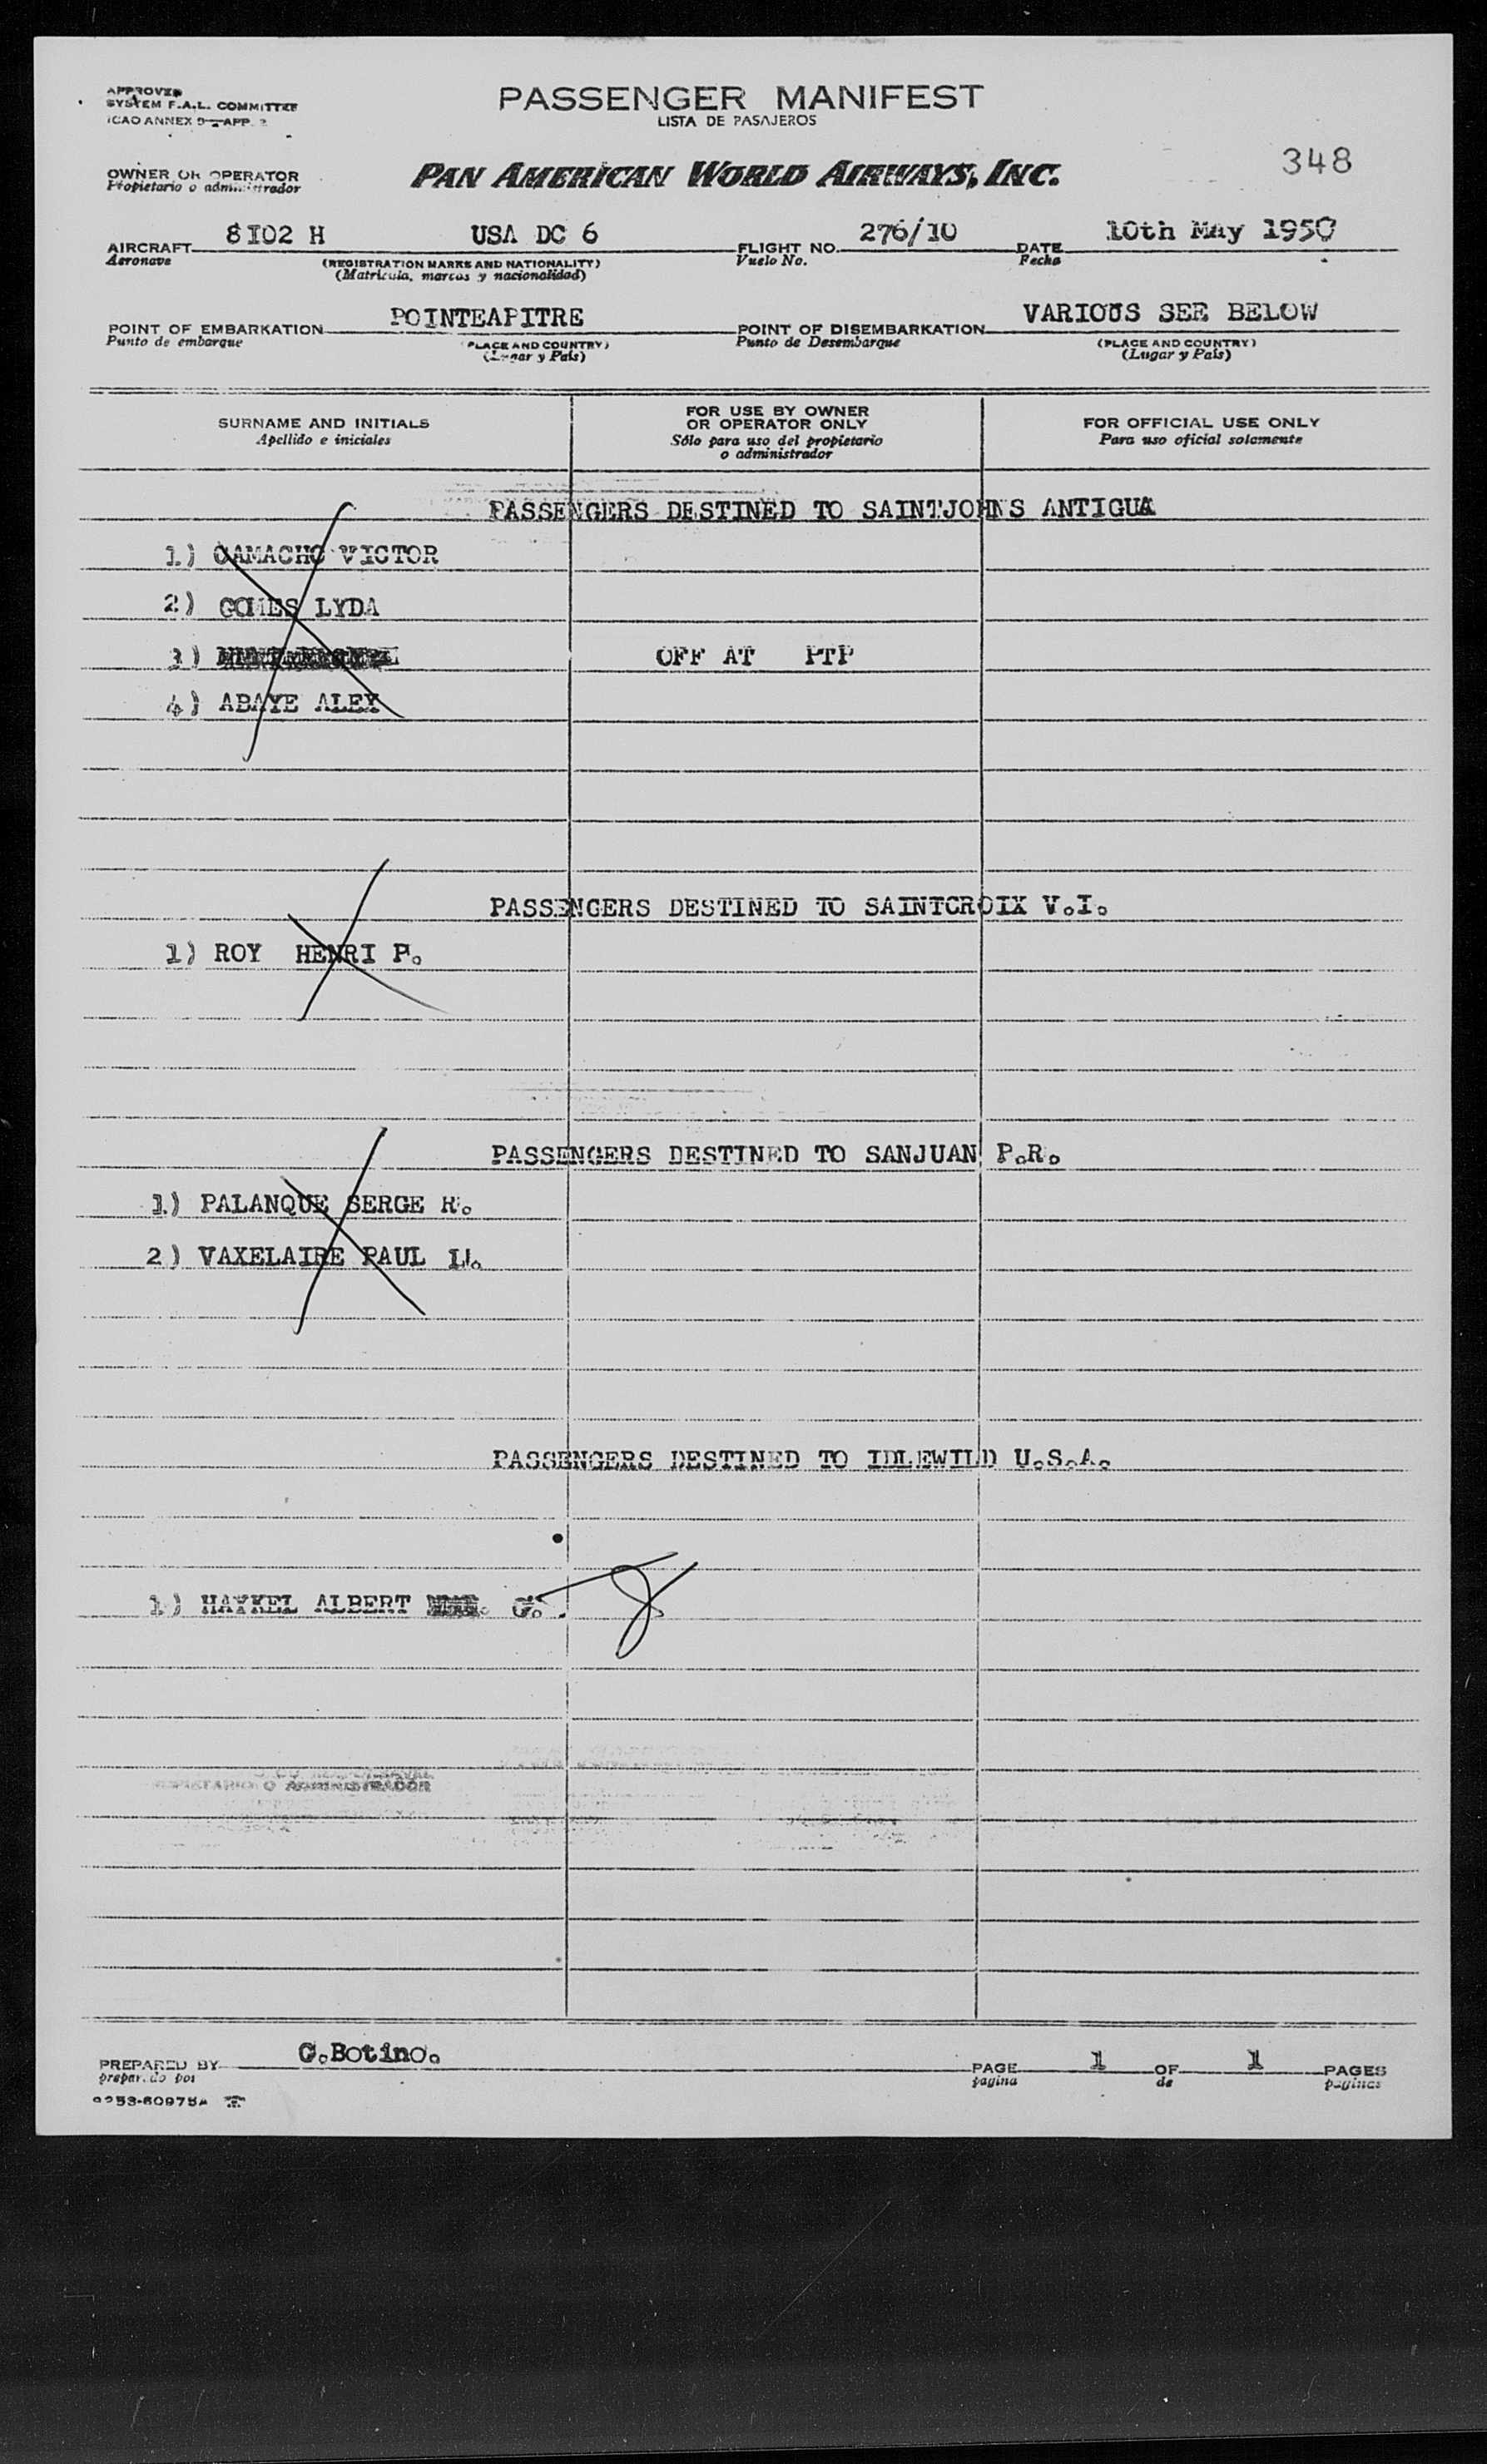 APPROVED
SYSTEM F.A.L. COMMITTEE
ICAO ANNEX 9—APP. 2
PASSENGER MANIFEST
LISTA DE PASAJEROS
348
OWNER OR OPERATOR
Propietario o administrador
PAN AMERICAN WORLD AIRWAYS, INC.
AIRCRAFT 8I02 H USA DC 6 FLIGHT NO. 276/10 DATE 10th May 1950
Aeronave (REGISTRATION MARKS AND NATIONALITY) Vuelo No. Fecha
(Matrícula, marcas y nacionalidad)
POINT OF EMBARKATION POINTEAPITRE POINT OF DISEMBARKATION VARIOUS SEE BELOW
Punto de embarque (PLACE AND COUNTRY) Punto de Desembarque (PLACE AND COUNTRY)
(Lugar y País) (Lugar y País)
SURNAME AND INITIALS
Apellido e iniciales
FOR USE BY OWNER
OR OPERATOR ONLY
Sólo para uso del propietario
o administrador
FOR OFFICIAL USE ONLY
Para uso oficial solamente
PASSENGERS DESTINED TO SAINTJOHNS ANTIGUA
1) CAMACHO VICTOR
2) GOMES LYDA
3) OFF AT PTP
4) ABAYE ALEX
PASSENGERS DESTINED TO SAINTCROIX V.I.
1) ROY HENRI P.
PASSENGERS DESTINED TO SANJUAN P.R.
1) PALANQUE SERGE R.
2) VAXELAIRE PAUL L.
PASSENGERS DESTINED TO IDLEWILD U.S.A.
1) HAYKEL ALBERT G.
O ADMINISTRADOR
PREPARED BY G.Botino. PAGE 1 OF 1 PAGES
preparado por pagina de paginas
9253-60975A